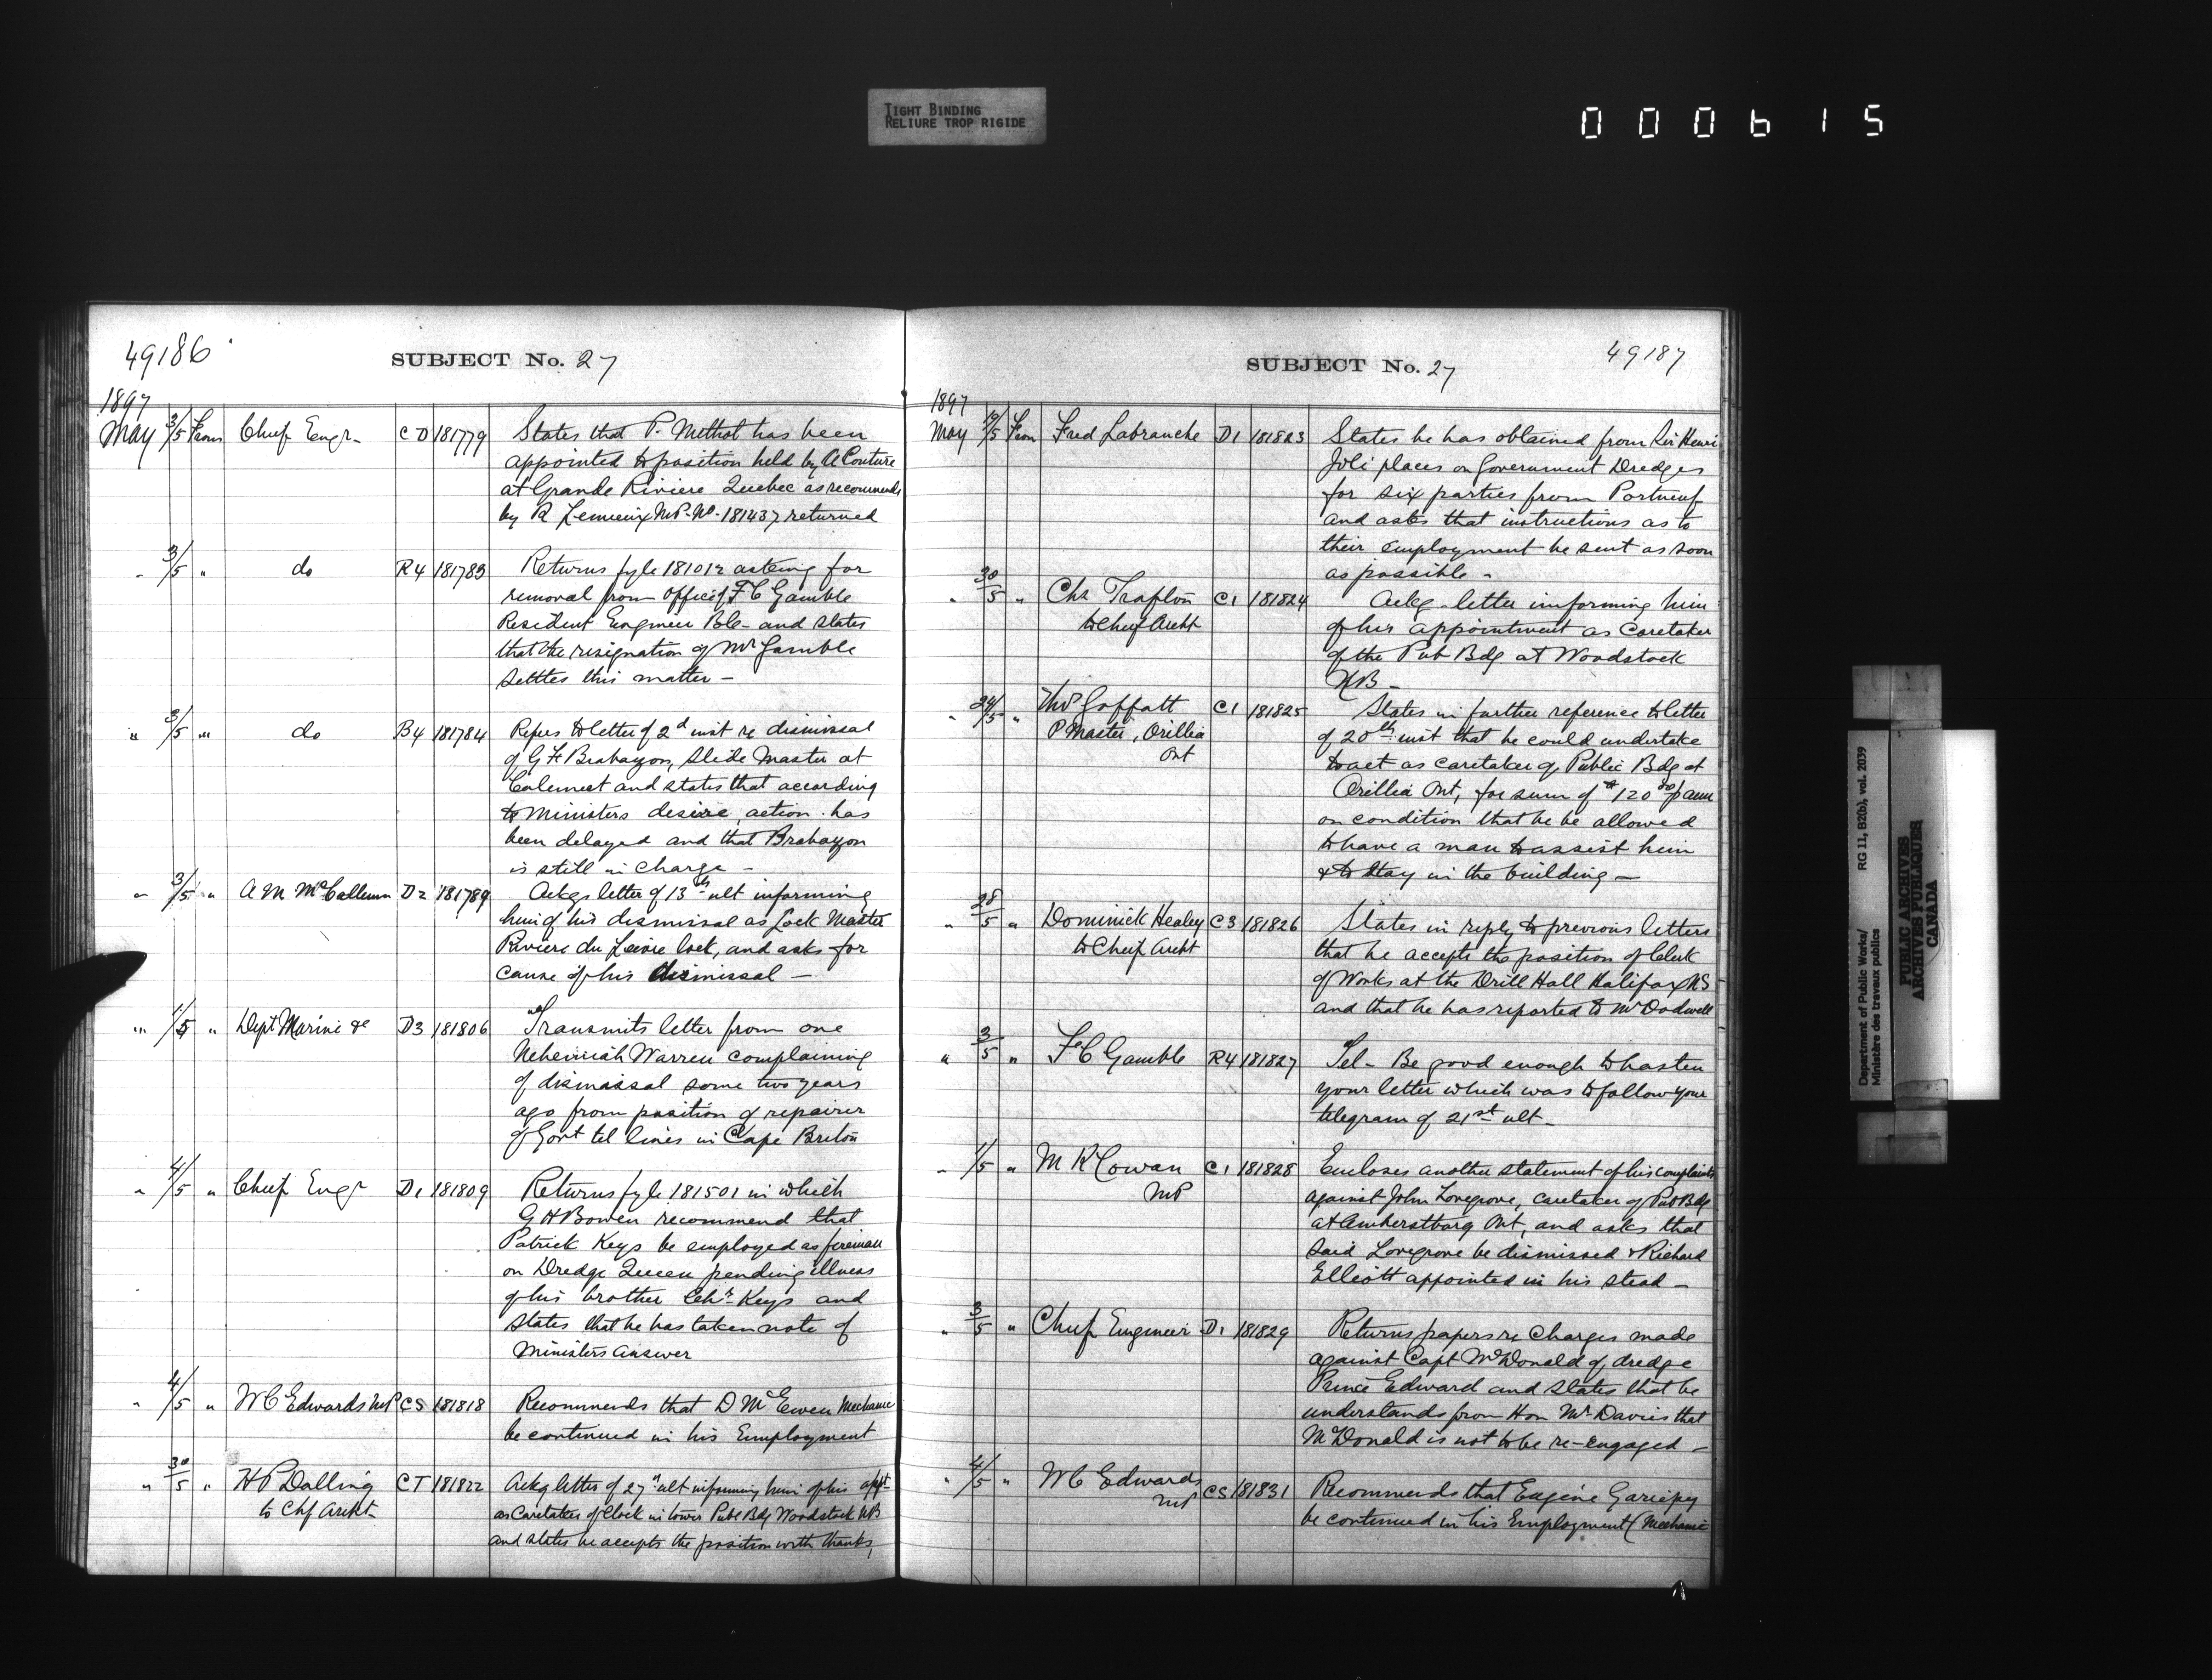 TIGHT BINDING
RELIURE TROP RIGIDE
000615
49186
SUBJECT No. 27
1897
May 3/5 From Chief Engr C D 181779 States that P. Methot has been
appointed to position held by A Couture
at Grande Riviere Quebec as recommends
by R Lemieux M.P. No. 181437 returned
" 3/5 " do R4 181783 Returns fyle 181012 asking for
removal from office of F C Gamble
Resident Engineer B.C. and states
that the resignation of Mr Gamble
settles this matter -
" 3/5 " do B4 181784 Refers to letter of 2d inst re dismissal
of G F Brabazon, Slide Master at
Calumet and states that according
to Ministers desire, action has
been delayed and that Brabazon
is still in charge -
" 3/5 " A M McCallum D2 181789 Ackgs letter of 13th ult informing
him of his dismissal as Lock Master
Riviere du Lievre lock, and asks for
cause of his dismissal -
" 1/5 " Dept Marine &c D3 181806 Transmits letter from one
Nehemiah Warren complaining
of dismissal some two years
ago from position of repairer
of Govt tel lines in Cape Breton
" 4/5 " Chief Engr D1 181809 Returns fyle 181501 in which
G H Bowen recommend that
Patrick Keys be employed as fireman
on Dredge Queen pending illness
of his brother Chr Keys and
states that he has taken note of
Ministers answer
" 4/5 " W C Edwards MP CS 181818 Recommends that D McEwen Mechanic
be continued in his Employment
" 30/5 " H P Dalling CT 181822 Ackg letter of 27th ult informing him of his appt
to Chf Archt as Caretaker of Clock in tower Pub Bdg Woodstock NB
and states he accepts the position with thanks,
SUBJECT No. 27
49187
1897
May 19/5 From Fred Labranche D1 181823 States he has obtained from Sir Henri
Joli places on Government Dredges
for six parties from Portneuf
and asks that instructions as to
their employment be sent as soon
as possible -
" 30/5 " Chs C1 181824 Ackg letter informing him
to Chief Archt of his appointment as Caretaker
of the Pub Bdg at Woodstock
NB -
" 24/5 " Thos Goffatt C1 181825 States in further reference to letter
P Master, Orillia of 20th inst that he could undertake
Ont to act as caretaker of Public Bdg at
Orillia Ont, for sum of $120 00 p ann
on condition that he be allowed
to have a man to assist him
& to stay in the building -
" 28/5 " Dominick Healey C3 181826 States in reply to previous letters
to Chief Archt that he accepts the position of Clerk
of Works at the Drill Hall Halifax NS
and that he has reported to Mr Dodwell
" 3/5 " F C Gamble R4 181827 Tel - Be good enough to hasten
your letter which was to follow your
telegram of 21st ult -
" 1/5 " M K Cowan C1 181828 Encloses another statement of his complaints
MP against John Lovegrove, caretaker of Pub Bdg
at Amherstburg Ont, and asks that
said Lovegrove be dismissed & Richard
Elliott appointed in his stead -
" 3/5 " Chief Engineer D1 181829 Returns papers re Charges made
against Capt McDonald of dredge
Prince Edward and states that he
understands from Hon Mr Davies that
McDonald is not to be re-engaged -
" 4/5 " W C Edwards CS 181831 Recommends that Eugene Gariepy
MP be continued in his Employment (Mechanic
Department of Public Works/ RG 11, B2(b), vol. 2039
Ministère des travaux publics
PUBLIC ARCHIVES
ARCHIVES PUBLIQUES
CANADA